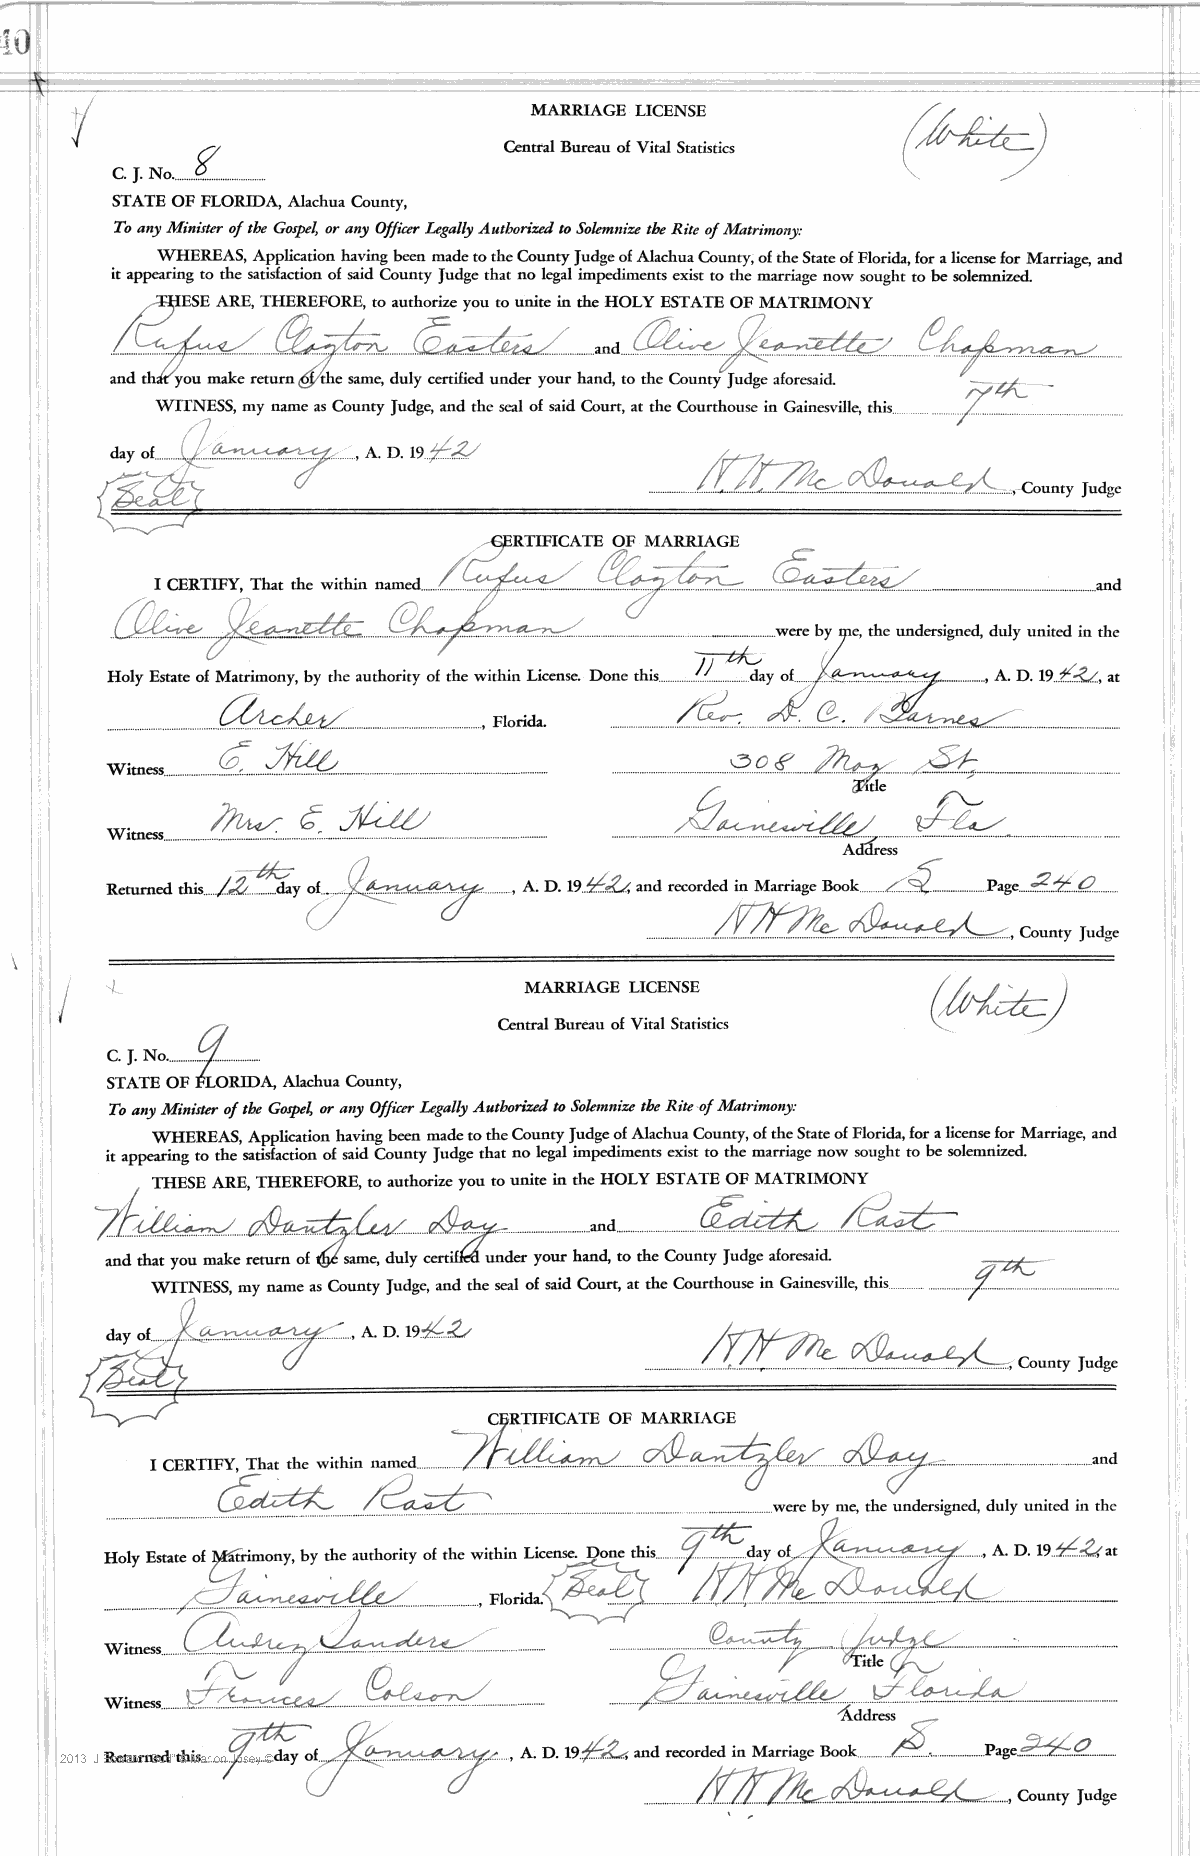 40
MARRIAGE LICENSE
(White)
Central Bureau of Vital Statistics
C. J. No. 8
STATE OF FLORIDA, Alachua County,
To any Minister of the Gospel, or any Officer Legally Authorized to Solemnize the Rite of Matrimony:
WHEREAS, Application having been made to the County Judge of Alachua County, of the State of Florida, for a license for Marriage, and
it appearing to the satisfaction of said County Judge that no legal impediments exist to the marriage now sought to be solemnized.
THESE ARE, THEREFORE, to authorize you to unite in the HOLY ESTATE OF MATRIMONY
Rufus Clayton Easters and Olive Jeanette Chapman
and that you make return of the same, duly certified under your hand, to the County Judge aforesaid.
WITNESS, my name as County Judge, and the seal of said Court, at the Courthouse in Gainesville, this 7th
day of January, A. D. 1942
Seal H. H. McDonald, County Judge
CERTIFICATE OF MARRIAGE
I CERTIFY, That the within named Rufus Clayton Easters and
Olive Jeanette Chapman were by me, the undersigned, duly united in the
Holy Estate of Matrimony, by the authority of the within License. Done this 11th day of January, A. D. 1942, at
Archer, Florida. Rev. D. C. Barnes
Witness E. Hill 308 May St,
Title
Witness Mrs. E. Hill Gainesville, Fla.
Address
Returned this 12th day of January, A. D. 1942, and recorded in Marriage Book S Page 240
H H McDonald, County Judge
MARRIAGE LICENSE
(White)
Central Bureau of Vital Statistics
C. J. No. 9
STATE OF FLORIDA, Alachua County,
To any Minister of the Gospel, or any Officer Legally Authorized to Solemnize the Rite of Matrimony:
WHEREAS, Application having been made to the County Judge of Alachua County, of the State of Florida, for a license for Marriage, and
it appearing to the satisfaction of said County Judge that no legal impediments exist to the marriage now sought to be solemnized.
THESE ARE, THEREFORE, to authorize you to unite in the HOLY ESTATE OF MATRIMONY
William Dantzler Day and Edith Rast
and that you make return of the same, duly certified under your hand, to the County Judge aforesaid.
WITNESS, my name as County Judge, and the seal of said Court, at the Courthouse in Gainesville, this 9th
day of January, A. D. 1942
Seal H. H. McDonald, County Judge
CERTIFICATE OF MARRIAGE
I CERTIFY, That the within named William Dantzler Day and
Edith Rast were by me, the undersigned, duly united in the
Holy Estate of Matrimony, by the authority of the within License. Done this 9th day of January, A. D. 1942, at
Gainesville, Florida. Seal H H McDonald
Witness Audrey Sanders County Judge
Title
Witness Frances Colson Gainesville Florida
Address
2013 J
Returned this 9th day of January, A. D. 1942, and recorded in Marriage Book S. Page 240
H H McDonald, County Judge